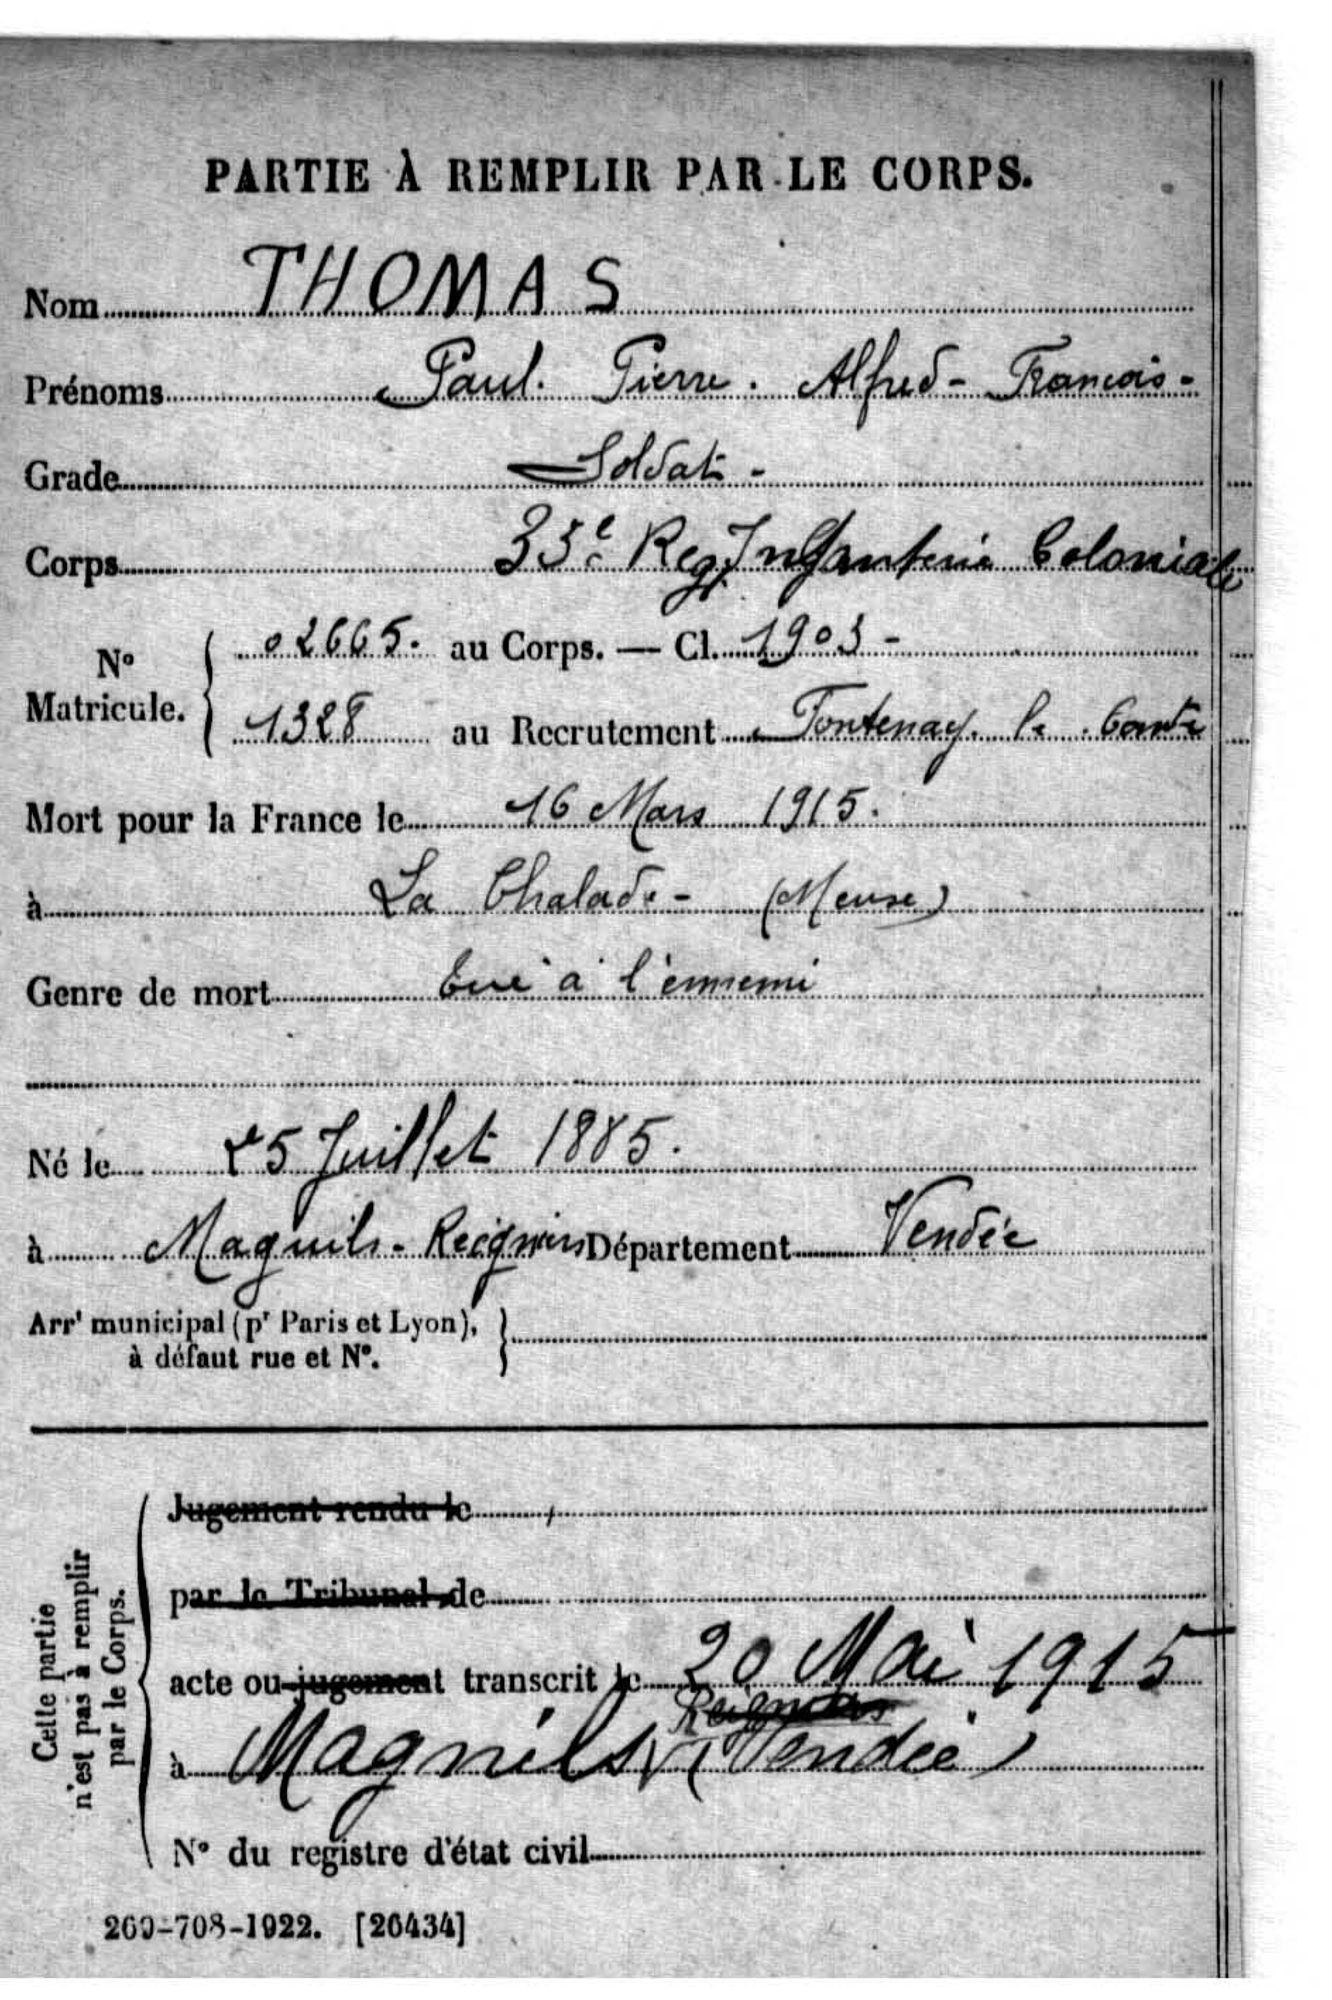 PARTIE À REMPLIR PAR LE CORPS.
Nom THOMAS
Prénoms Paul. Pierre. Alfred - Francois -
Grade Soldat -
Corps 33e Reg Infanterie Coloniale
N° Matricule. 02665. au Corps. — Cl. 1903 -
1328 au Recrutement Fontenay. le. Comte
Mort pour la France le 16 Mars 1915.
à La Chalade - (Meuse)
Genre de mort Tué à l'ennemi
Né le 25 Juillet 1885.
à Magnils - Reigniers Département Vendée
Arrt municipal (pr Paris et Lyon),
à défaut rue et N°.
Cette partie
n'est pas à remplir
par le Corps.
Jugement rendu le
par le Tribunal de
acte ou jugement transcrit le 20 Mai 1915
à Magnils (Vendée)
N° du registre d'état civil
269-708-1922. [26434]